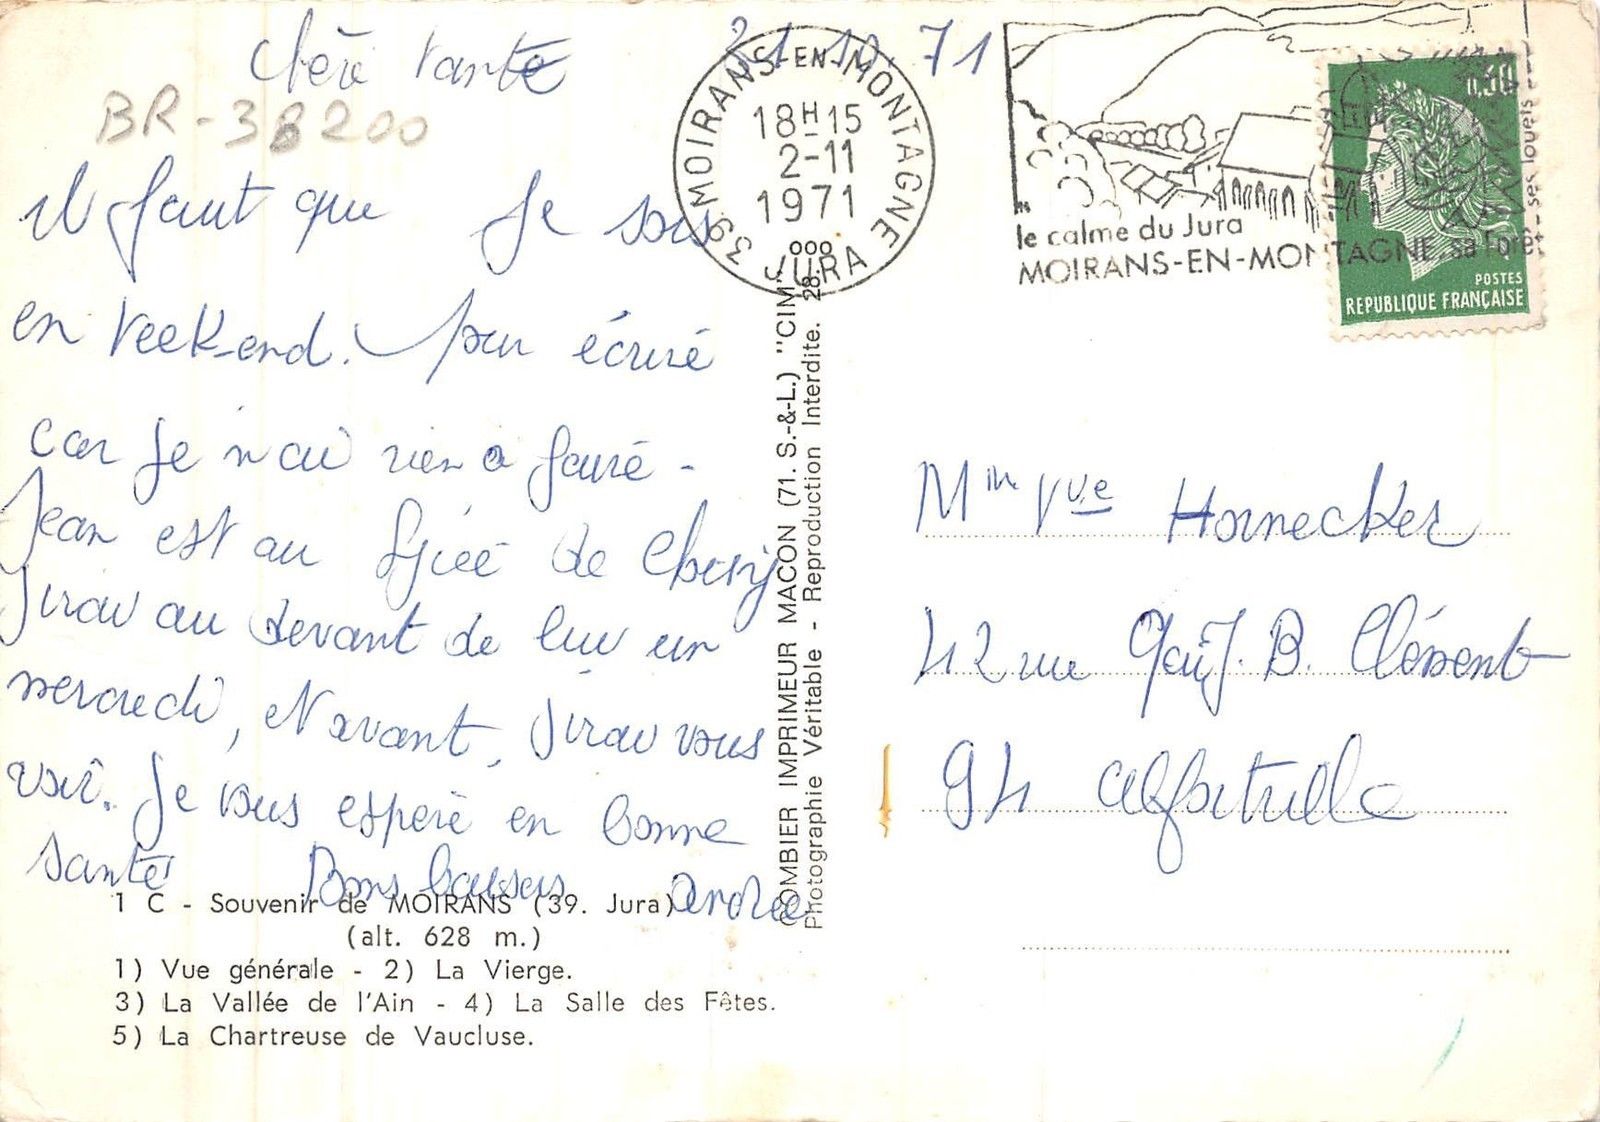 Chère tante
31.10.71
BR-38200
il faut que je sois
en Week-end. pour écrire
car je n'ai rien a faire -
Jean est au lycée de
J'irai au devant de lui un
mercredi, et avant, J'irai vous
voir. Je vous espère en bonne
santé Bons baisers Andrée
1 C - Souvenir de MOIRANS (39. Jura)
(alt. 628 m.)
1) Vue générale - 2) La Vierge.
3) La Vallée de l'Ain - 4) La Salle des Fêtes.
5) La Chartreuse de Vaucluse.
COMBIER IMPRIMEUR MACON (71. S.-&-L.) "CIM"
Photographie Véritable - Reproduction Interdite. 28.
39 MOIRANS-EN-MONTAGNE
18H15
2-11
1971
JURA
le calme du Jura
MOIRANS-EN-MONTAGNE, sa Forêt - ses jouets
0,30
POSTES
REPUBLIQUE FRANÇAISE
Mme Vve Hornecker
42 rue J. B. Clément
94 Alfortville